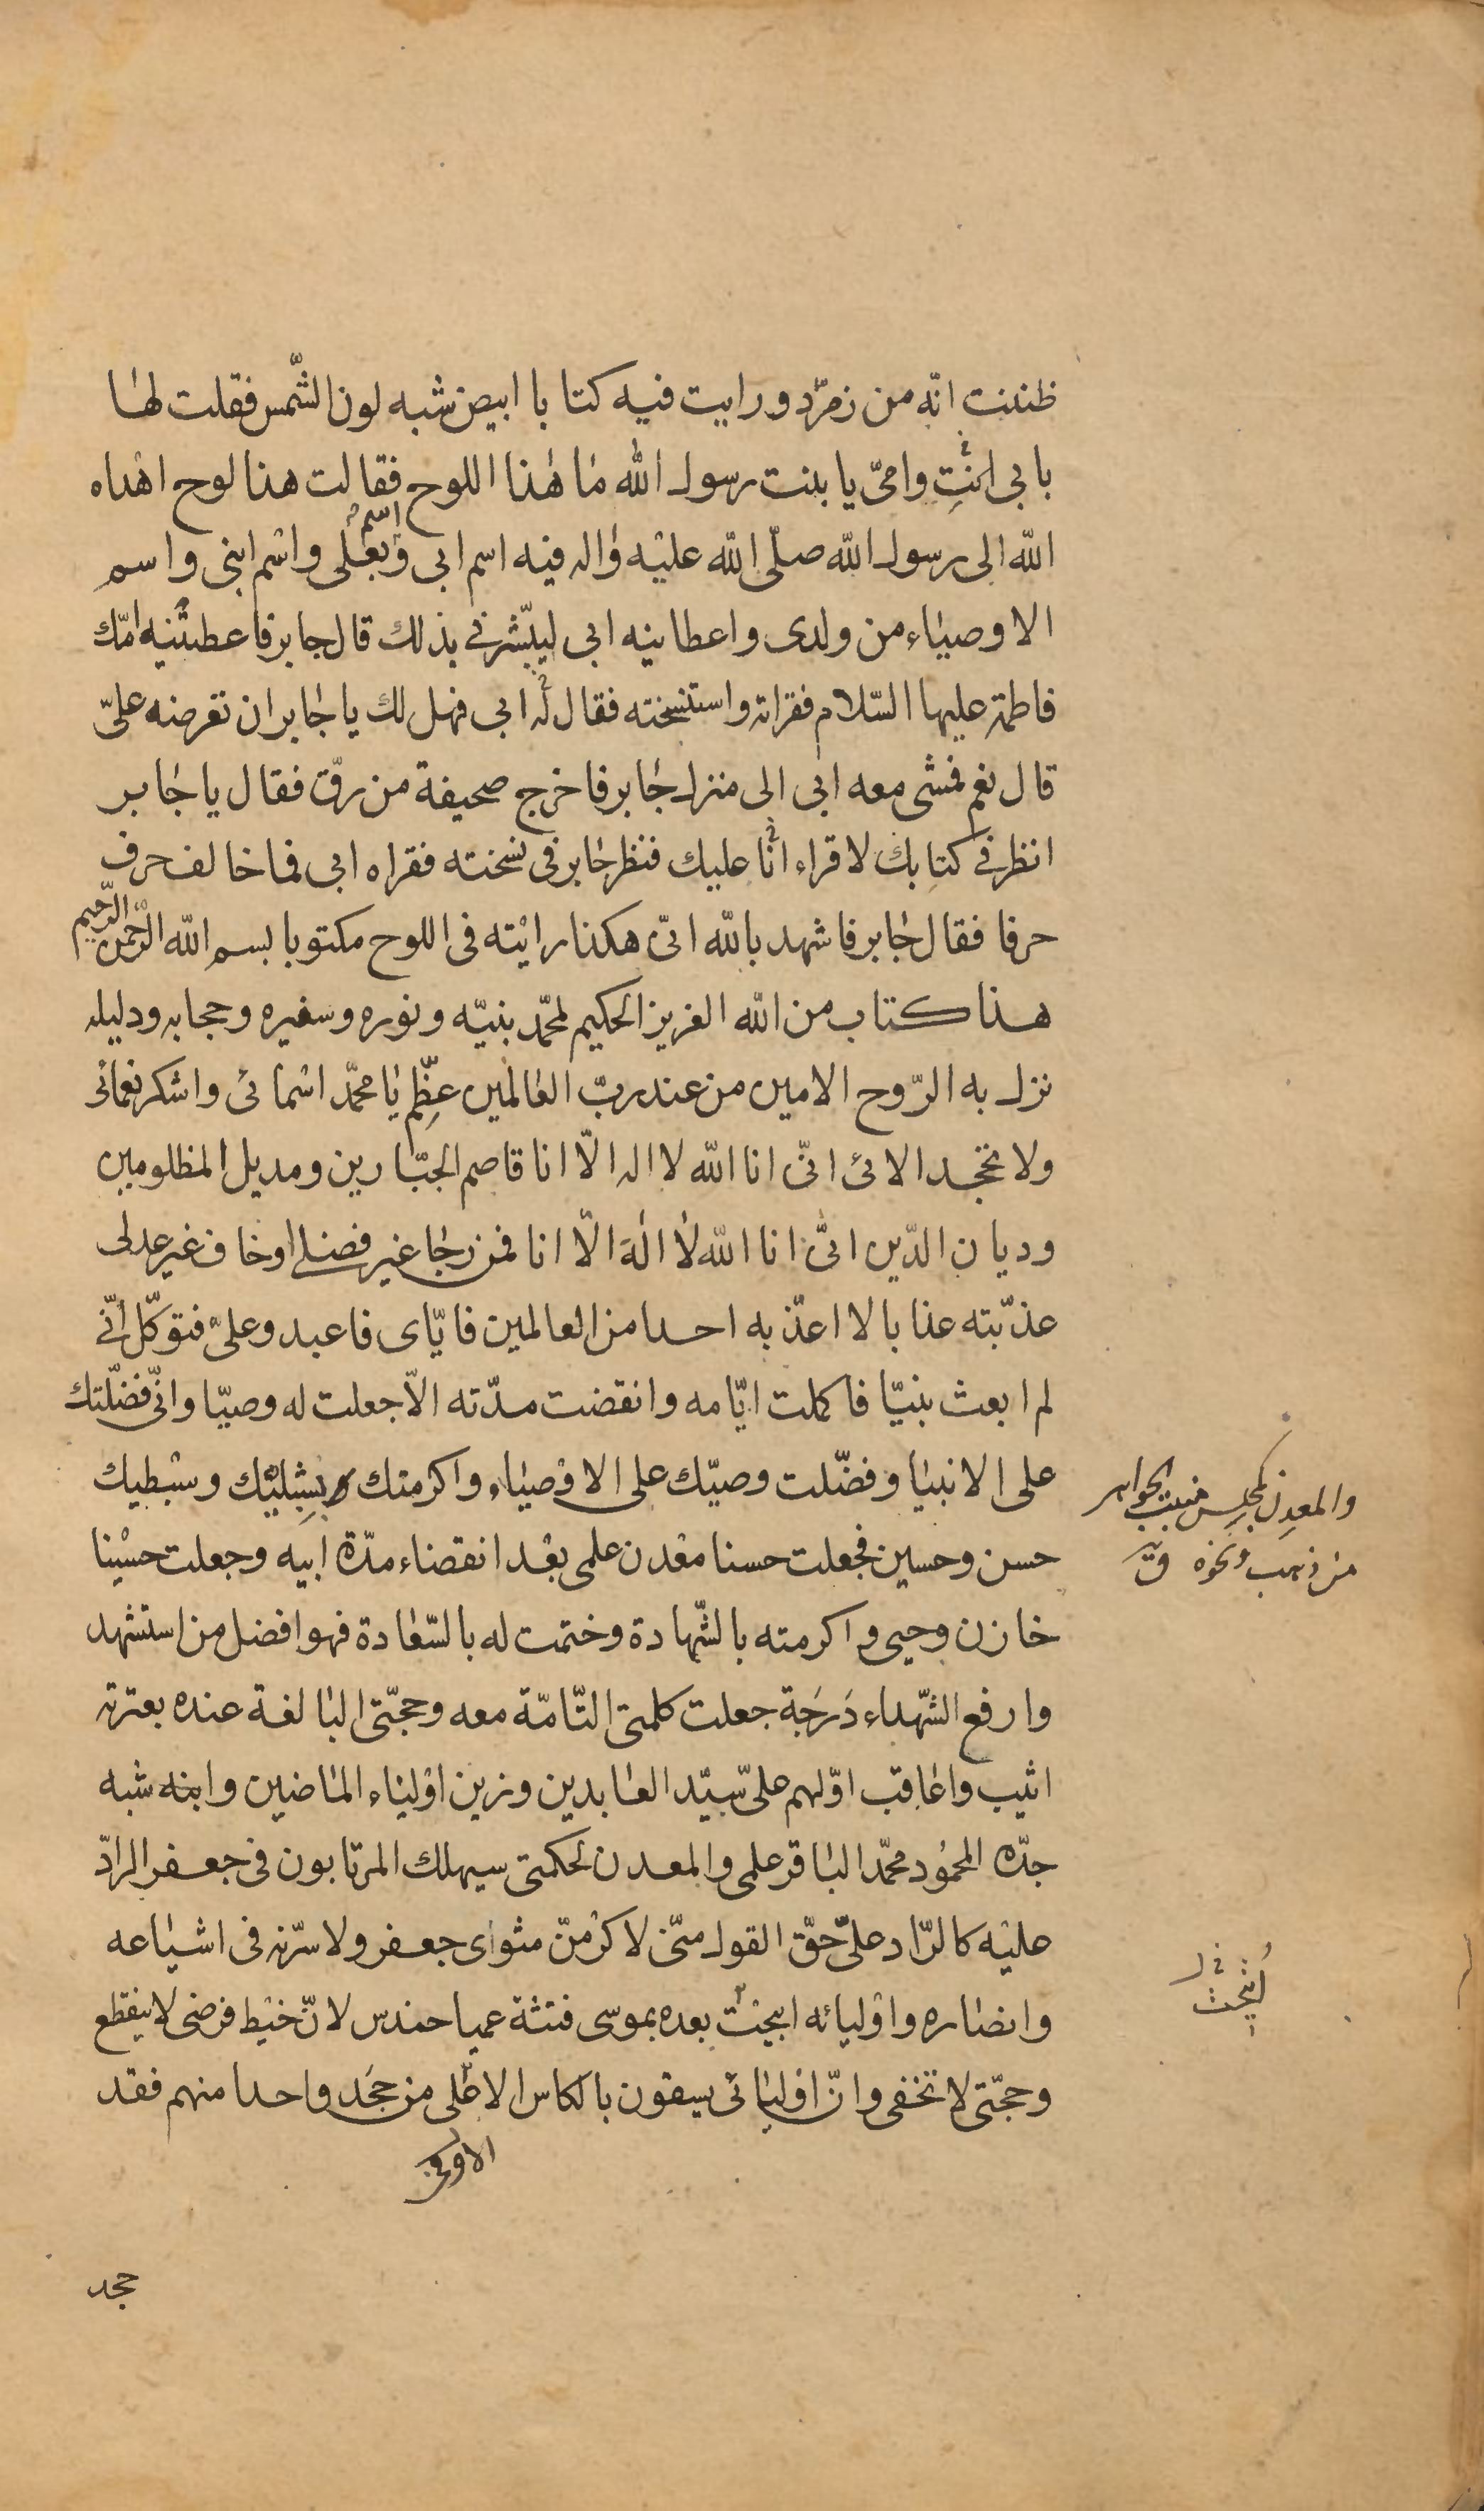 ظننت انّه من زمرّد ورايت فيه كتابا ابيض شبه لون الشّمس فقلت لها
بابى انتِ وامّى يا بنت رسول الله ما هذا اللوح فقالت هذا لوح اهداه
الله الى رسول الله صلّى الله عليه واله فيه اسم ابى واسم بعلى واسم ابنى واسم
الاوصياء من ولدى واعطانيه ابى ليبشّرنى بذلك قال جابر فاعطتنيه امّك
فاطمة عليها السّلام فقراته واستنسخته فقال له ابى فهل لك يا جابر ان تعرضه علىّ
قال نعم فمشى معه ابى الى منزل جابر فاخرج صحيفة من رقّ فقال يا جابر
انظر فى كتابك لاقراء انا عليك فنظر جابر فى نسخته فقراه ابى فما خالف حرف
حرفا فقال جابر فاشهد بالله انّى هكذا رايته فى اللوح مكتوبا بسم الله الرّحمن الرّحيم
هذا كتاب من الله العزيز الحكيم لمحمّد نبيّه ونوره وسفيره وحجابه ودليله
نزل به الرّوح الامين من عند ربّ العالمين عظّم يا محمّد اسمائى واشكر نعمائى
ولا تجحد الائى انّى انا الله لا اله الّا انا قاصم الجبّارين ومديل المظلومين
وديان الدّين انّى انا الله لا اله الّا انا فمن رجا غير فضلى او خاف غير عدلى
عذّبته عذابا لا اعذّبه احدا من العالمين فايّاى فاعبد وعلىّ فتوكّل انّى
لم ابعث نبيّا فاكملت ايّامه وانقضت مدّته الّا جعلت له وصيّا وانّى فضّلتك
على الانبيا وفضّلت وصيّك على الاوصياء واكرمتك بشبليك وسبطيك
حسن وحسين فجعلت حسنا معدن علمى بعد انقضاء مدّة ابيه وجعلت حسينا
خازن وحيى واكرمته بالشّهادة وختمت له بالسّعادة فهو افضل من استشهد
وارفع الشّهداء دَرَجَة جعلت كلمتى التّامّة معه وحجّتى البالغة عنده بعترته
اثيب واعاقب اوّلهم علىّ سيّد العابدين وزين اولياء الماضين وابنه شبه
جدّه المحمود محمّد الباقر علمى والمعدن لحكمتى سيهلك المرتابون فى جعفر الرادّ
عليه كالرّاد علىّ حقّ القول منّى لاكرمنّ مثواى جعفر ولاسرّنه فى اشياعه
وانصاره واوليائه اتيحت بعده بموسى فتنة عميا حندس لانّ خيط فرضى لا ينقطع
وحجّتى لا تخفى وانّ اوليائى يسقون بالكاس الاعلى من جحد واحدا منهم فقد
الاوفى
جحد
والمعدِن كمجلس منبت الجواهر
من ذهب ونحوه ق
اُنتجبت